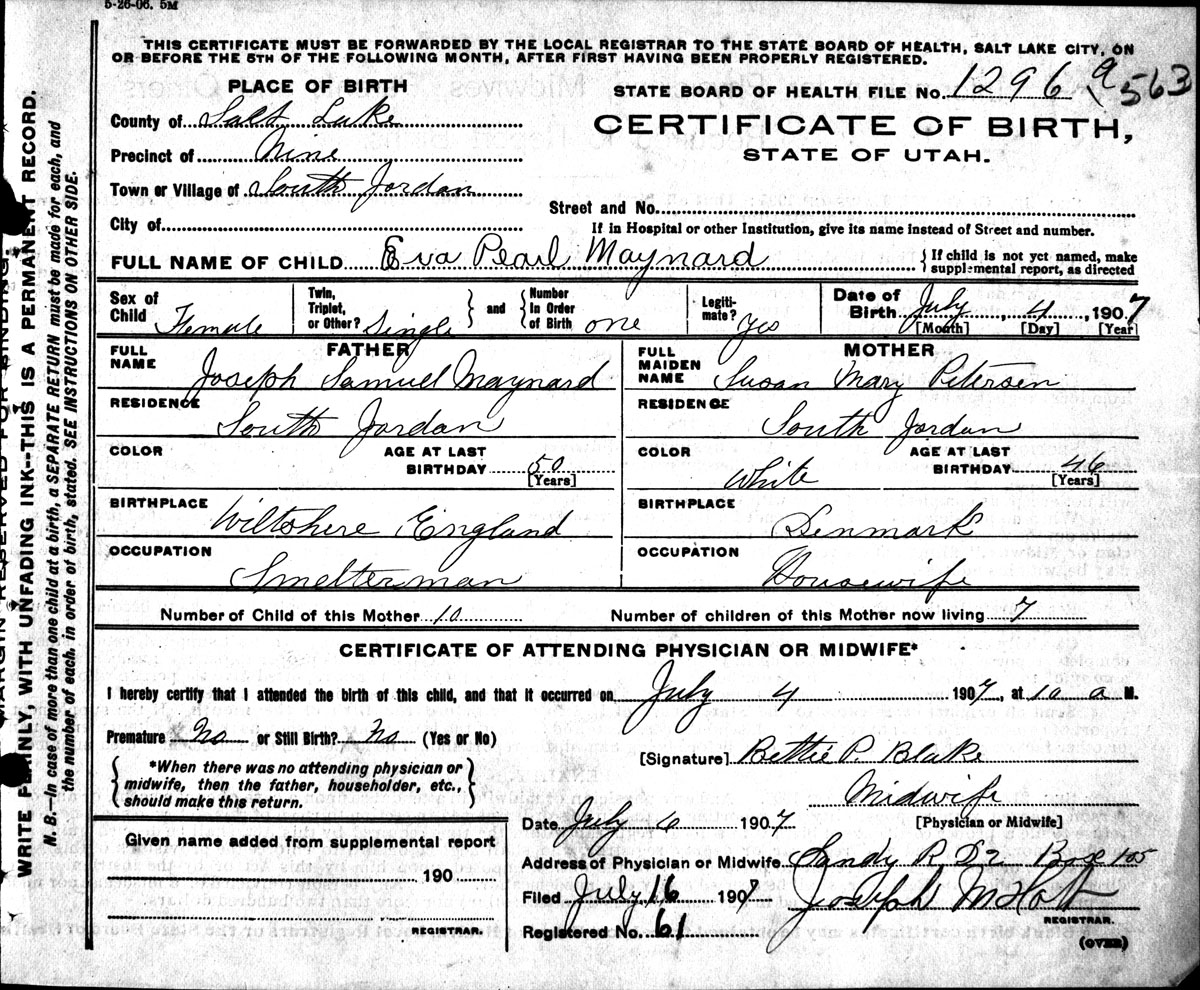 5-26-06. 5M
THIS CERTIFICATE MUST BE FORWARDED BY THE LOCAL REGISTRAR TO THE STATE BOARD OF HEALTH, SALT LAKE CITY, ON
OR BEFORE THE 5TH OF THE FOLLOWING MONTH, AFTER FIRST HAVING BEEN PROPERLY REGISTERED.
PLACE OF BIRTH
STATE BOARD OF HEALTH FILE No. 1296 563
County of Salt Lake
CERTIFICATE OF BIRTH,
Precinct of Nine
STATE OF UTAH.
Town or Village of South Jordan
Street and No.
City of
If in Hospital or other Institution, give its name instead of Street and number.
FULL NAME OF CHILD Eva Pearl Maynard { If child is not yet named, make supplemental report, as directed
Sex of Child Female Twin, Triplet, or Other? Single } and { Number In Order of Birth one Legitimate? Yes Date of Birth July 4, 1907
[Month] [Day] [Year]
FATHER MOTHER
FULL NAME Joseph Samuel Maynard FULL MAIDEN NAME Susan Mary Petersen
RESIDENCE South Jordan RESIDENCE South Jordan
COLOR AGE AT LAST BIRTHDAY 50 [Years] COLOR White AGE AT LAST BIRTHDAY 46 [Years]
BIRTHPLACE Wiltshere England BIRTHPLACE Denmark
OCCUPATION Smelterman OCCUPATION Housewife
Number of Child of this Mother 10 Number of children of this Mother now living 7
CERTIFICATE OF ATTENDING PHYSICIAN OR MIDWIFE*
I hereby certify that I attended the birth of this child, and that it occurred on July 4 1907, at 10 a M.
Premature No or Still Birth? No (Yes or No)
[Signature] Bettie P. Blake
*When there was no attending physician or
midwife, then the father, householder, etc.,
should make this return.
Midwife
[Physician or Midwife]
Date July 6 1907
Given name added from supplemental report
Address of Physician or Midwife Sandy R Box 105
190
Filed July 16 1907 Joseph M Holt
REGISTRAR.
REGISTRAR.
Registered No. 61
(OVER)
MARGIN RESERVED FOR BINDING.
WRITE PLAINLY, WITH UNFADING INK--THIS IS A PERMANENT RECORD.
N. B.—In case of more than one child at a birth, a SEPARATE RETURN must be made for each, and
the number of each, in order of birth, stated. SEE INSTRUCTIONS ON OTHER SIDE.